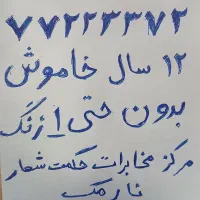 ۷۷۲۲۳۳۷۲
۱۲ سال خاموش
بدون حتی ۱ زنگ
مرکز مخابرات حکمت شعار
نارمک